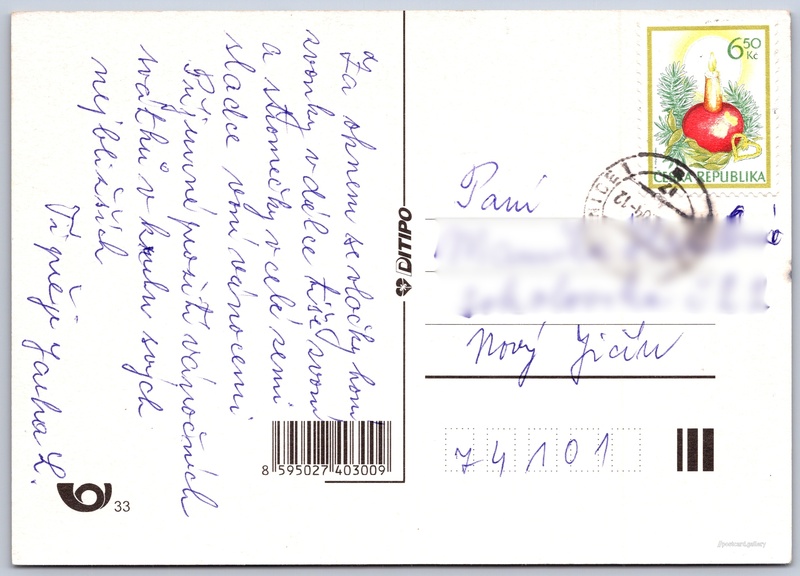 Za oknem se vločky honí
zvonky v dálce tiše zvoní
a stromečky v celé zemi
sladce voní vánocemi
Příjemné prožití vánočních
svátků v kruhu svých
nejbližších
Ti přeje Jarka L.
33
DITIPO
8 595027 403009
6 50 Kč
ČESKÁ REPUBLIKA
Paní
Nový Jičín
74101
postcard.gallery